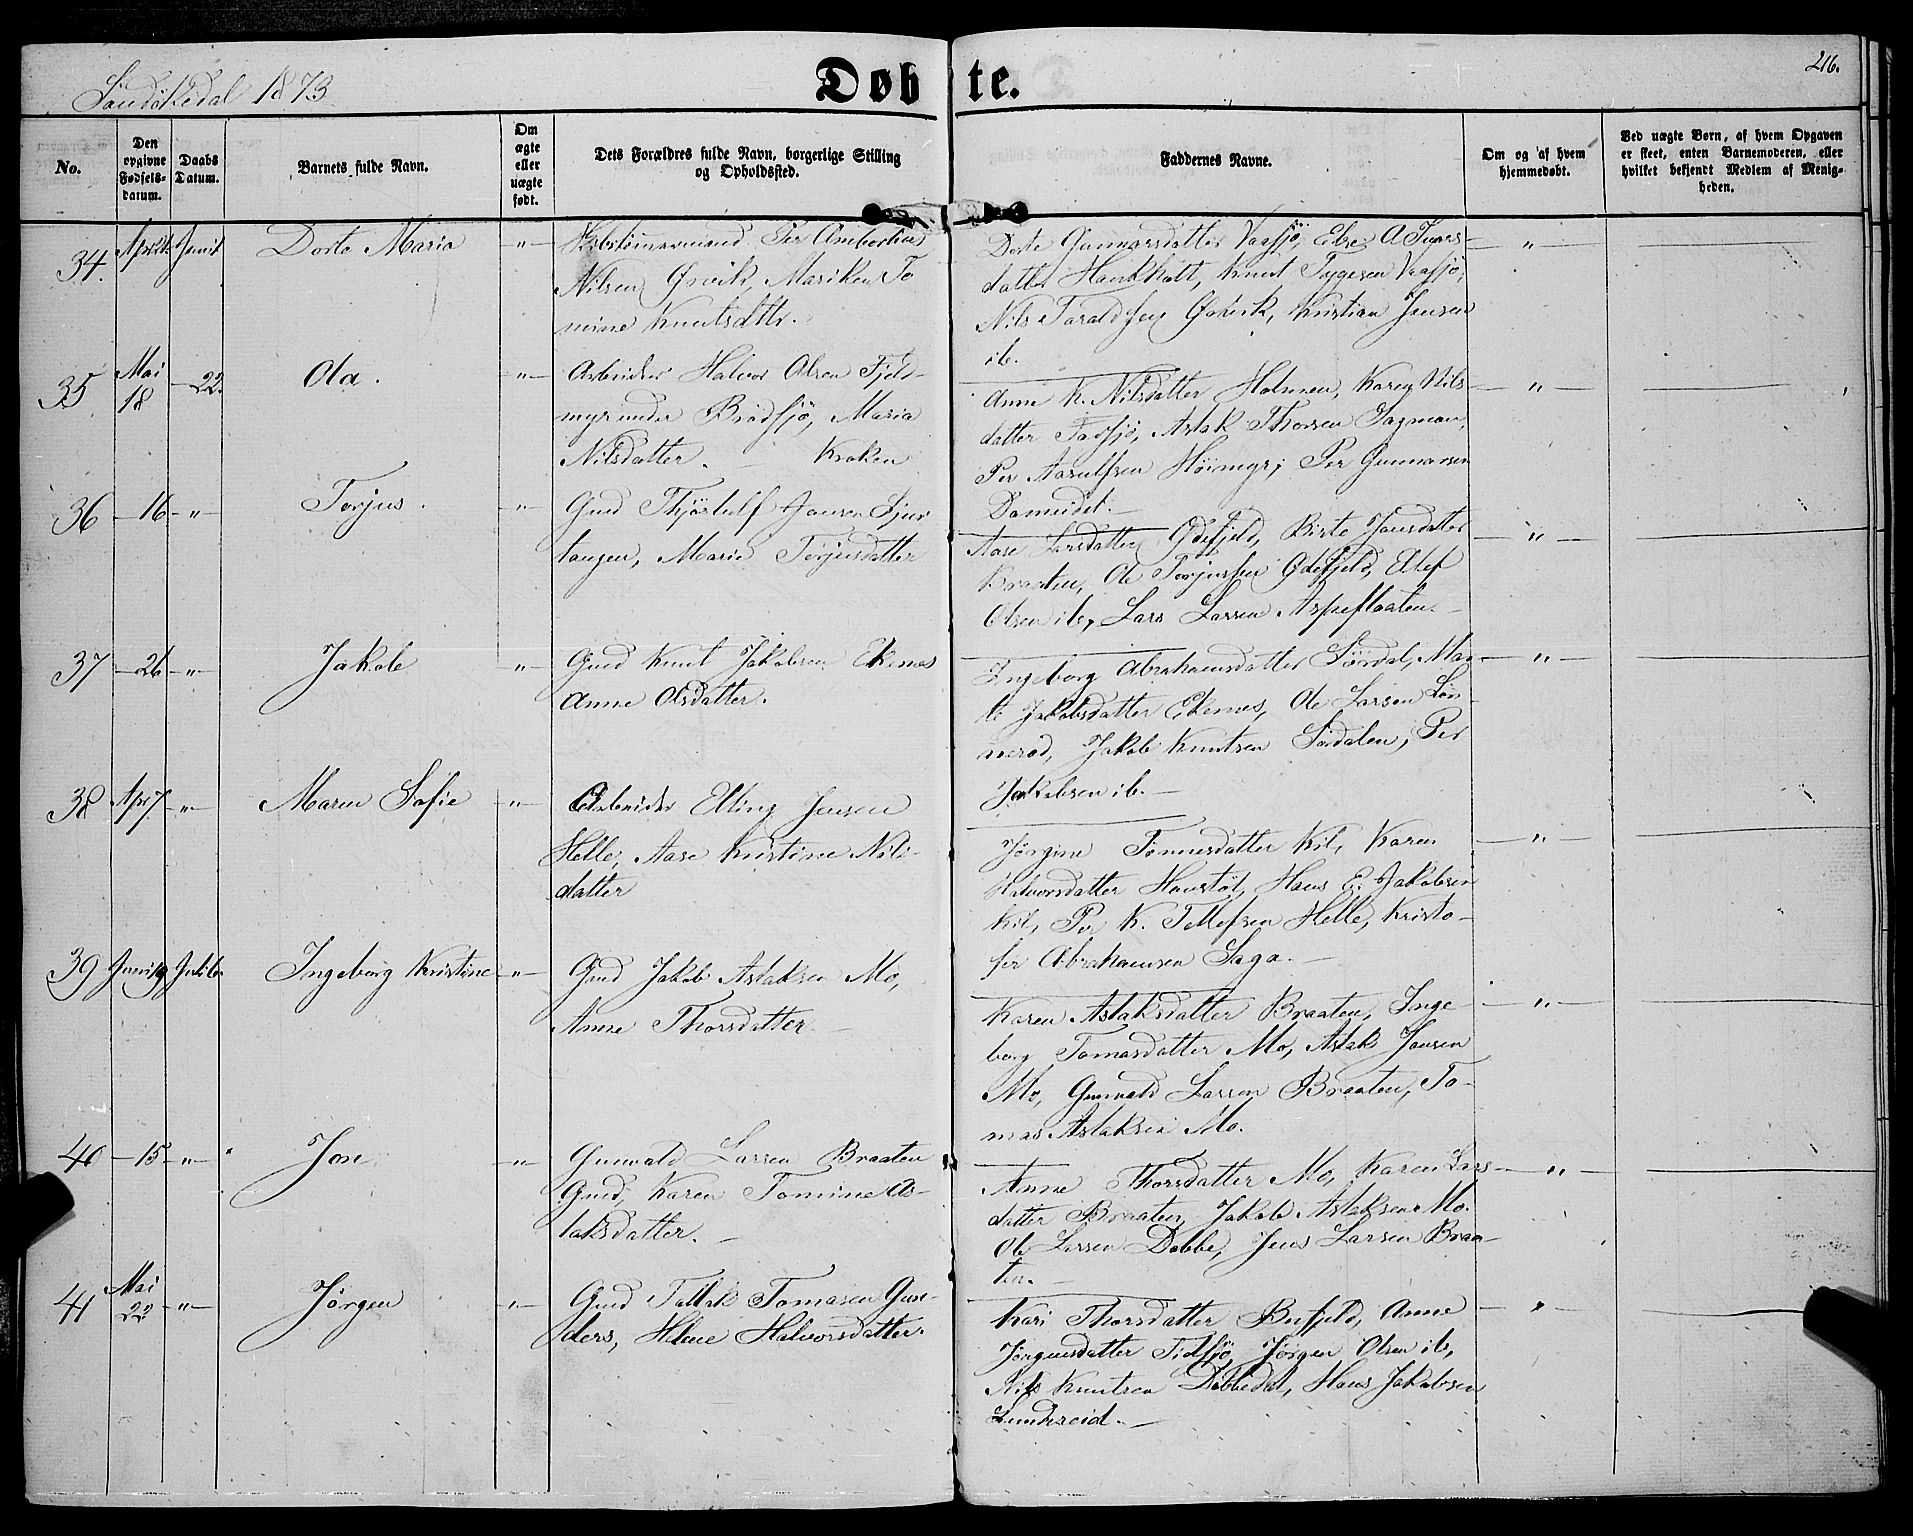 Sandøkedal 1873
Døbte.
26.
No.
Den opgivne Fødsels-datum.
Daabs Datum.
Barnets fulde Navn.
Om ægte eller uægte født.
Dets Forældres fulde Navn, borgerlige Stilling og Opholdssted.
Faddernes Navne.
Om og af hvem hjemmedøbt.
Ved uægte Børn, af hvem Opgaven er skeet, enten Barnemoderen, eller hvilket bekjendt Medlem af Menigheden.
34. April Juni Dorte Maria "
Per
Nilsen Mariken To
mine Knutsdttr.
Dorte Gunnarsdatter Vaasjö, Else A
datter Haukholt, Knut Tygesen Vaasjö,
Nils Taraldsen Kristian Jensen
ib.
"
35 Mai 18 - 22. Ola. "
Arbeider Halvor Olsen Fjeld-
myr under Brödsjö, Maria
Nilsdatter. Kroken
Anne K. Nilsdatter Holmen, Karen Nils-
datter Tadsjö, Aslak Thorsen Sagmoen,
Per Aanulfsen Höimyr, Per Gunnarsen
Dameidet.
"
36 - 16 - " - Torjus. "
Gmd Thjöstulf Jensen
tangen, Marie Torjusdatter
Aase Larsdatter Ødefjeld, Birte Jansdatter
Braaten, Ole Torjussen Ødefjeld, Elef
Olsen ib, Lars Larsen Aspeflaaten.
"
37 - 26 - " - Jakob "
Gmd Knut Jakobsen Ekenæs
Anne Olsdatter.
Ingeborg Abrahamsdatter Sördal, Ma-
te Jakobsdatter Ekenæs, Ole Larsen Lön-
nerød, Jakob Knutsen Sördalen, Per
Jakobsen ib.
"
38 Apr 7 - " - Maren Sofie "
Arbeider Elling Jensen
Helle, Aase Kristine Nils-
datter
Jørgine Tønnesdatter Kil, Karen
Halvorsdatter Haustöl, Hans E. Jakobsen
Kil, Per K. Tellefsen Helle, Kristo-
fer Abrahamsen Saga.
"
39 Juni 19 Juli 6 Ingeborg Kristine "
Gmd Jakob Aslaksen Mo,
Anne Thorsdatter
Karen Aslaksdatter Braaten, Inge-
borg Tomasdatter Mo, Aslak Jensen
Mo, Gunvald Larsen Braaten, To-
mas Aslaksen Mo.
"
40 - 15 - " - Jon "
Gunvald Larsen Braaten
Gmd, Karen Tomine As-
laksdatter.
Anne Thorsdatter Mo, Karen Lars-
datter Braaten, Jakob Aslaksen Mo.
Ole Larsen Dobbe, Jens Larsen Braa-
ten.
"
41 Mai 22 - " - Jörgen "
Gmd Tallak Tomasen Gun-
ders, Helene Halvorsdatter.
Kari Thorsdatter Bufjeld, Anne
Jörgensdatter Tidsjö, Jörgen Olsen ib,
Nils Knutsen Dobbedal, Hans Jakobsen
Lundereid.
"